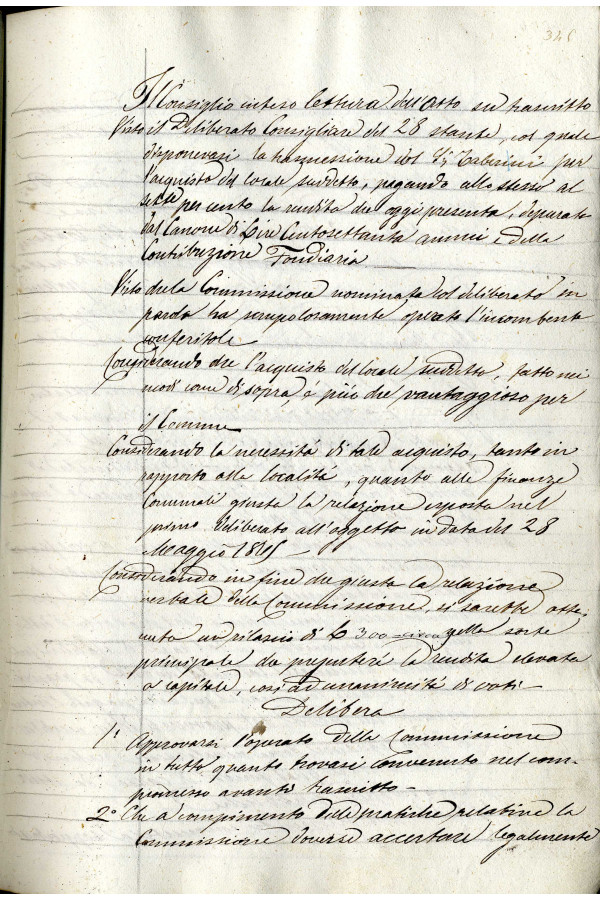 346
Il Consiglio inteso lettura dell'Atto su trascritto
Visto il Deliberato Consigliare del 28 stante, col quale
disponevasi la trasmessione del Sig Taberini per
l'acquisto del locale suddetto, pagando allo stesso al
sette per cento la rendita che oggi presenta, depurata
dal Canone di Lire Centosettanta annui, e della
Contribuzione Fondiaria
Visto che la Commissione nominata col deliberato in
parola ha scrupolosamente operato l'incombente
conferitole
Considerando che l'acquisto del locale suddetto, fatto nei
modi come di sopra, è più che vantaggioso per
il Comune
Considerando la necessità di tale acquisto, tanto in
rapporto alla località, quanto alle finanze
Comunali giusta la relazione esposta nel
primo deliberato all'oggetto in data del 28
Maggio
Considerando in fine che giusta la relazione
verbale della Commissione, si sarebbe otte-
nuto un rilascio di L 300 circa nella sorte
principale da presentare la rendita elevata
a capitale, così ad unanimità di voti
Delibera
1° Approvarsi l'operato della Commissione
in tutto quanto trovasi convenuto nel com-
promesso avanti trascritto
2° Che a compimento delle pratiche relative la
Commissione dovesse accertare legalmente